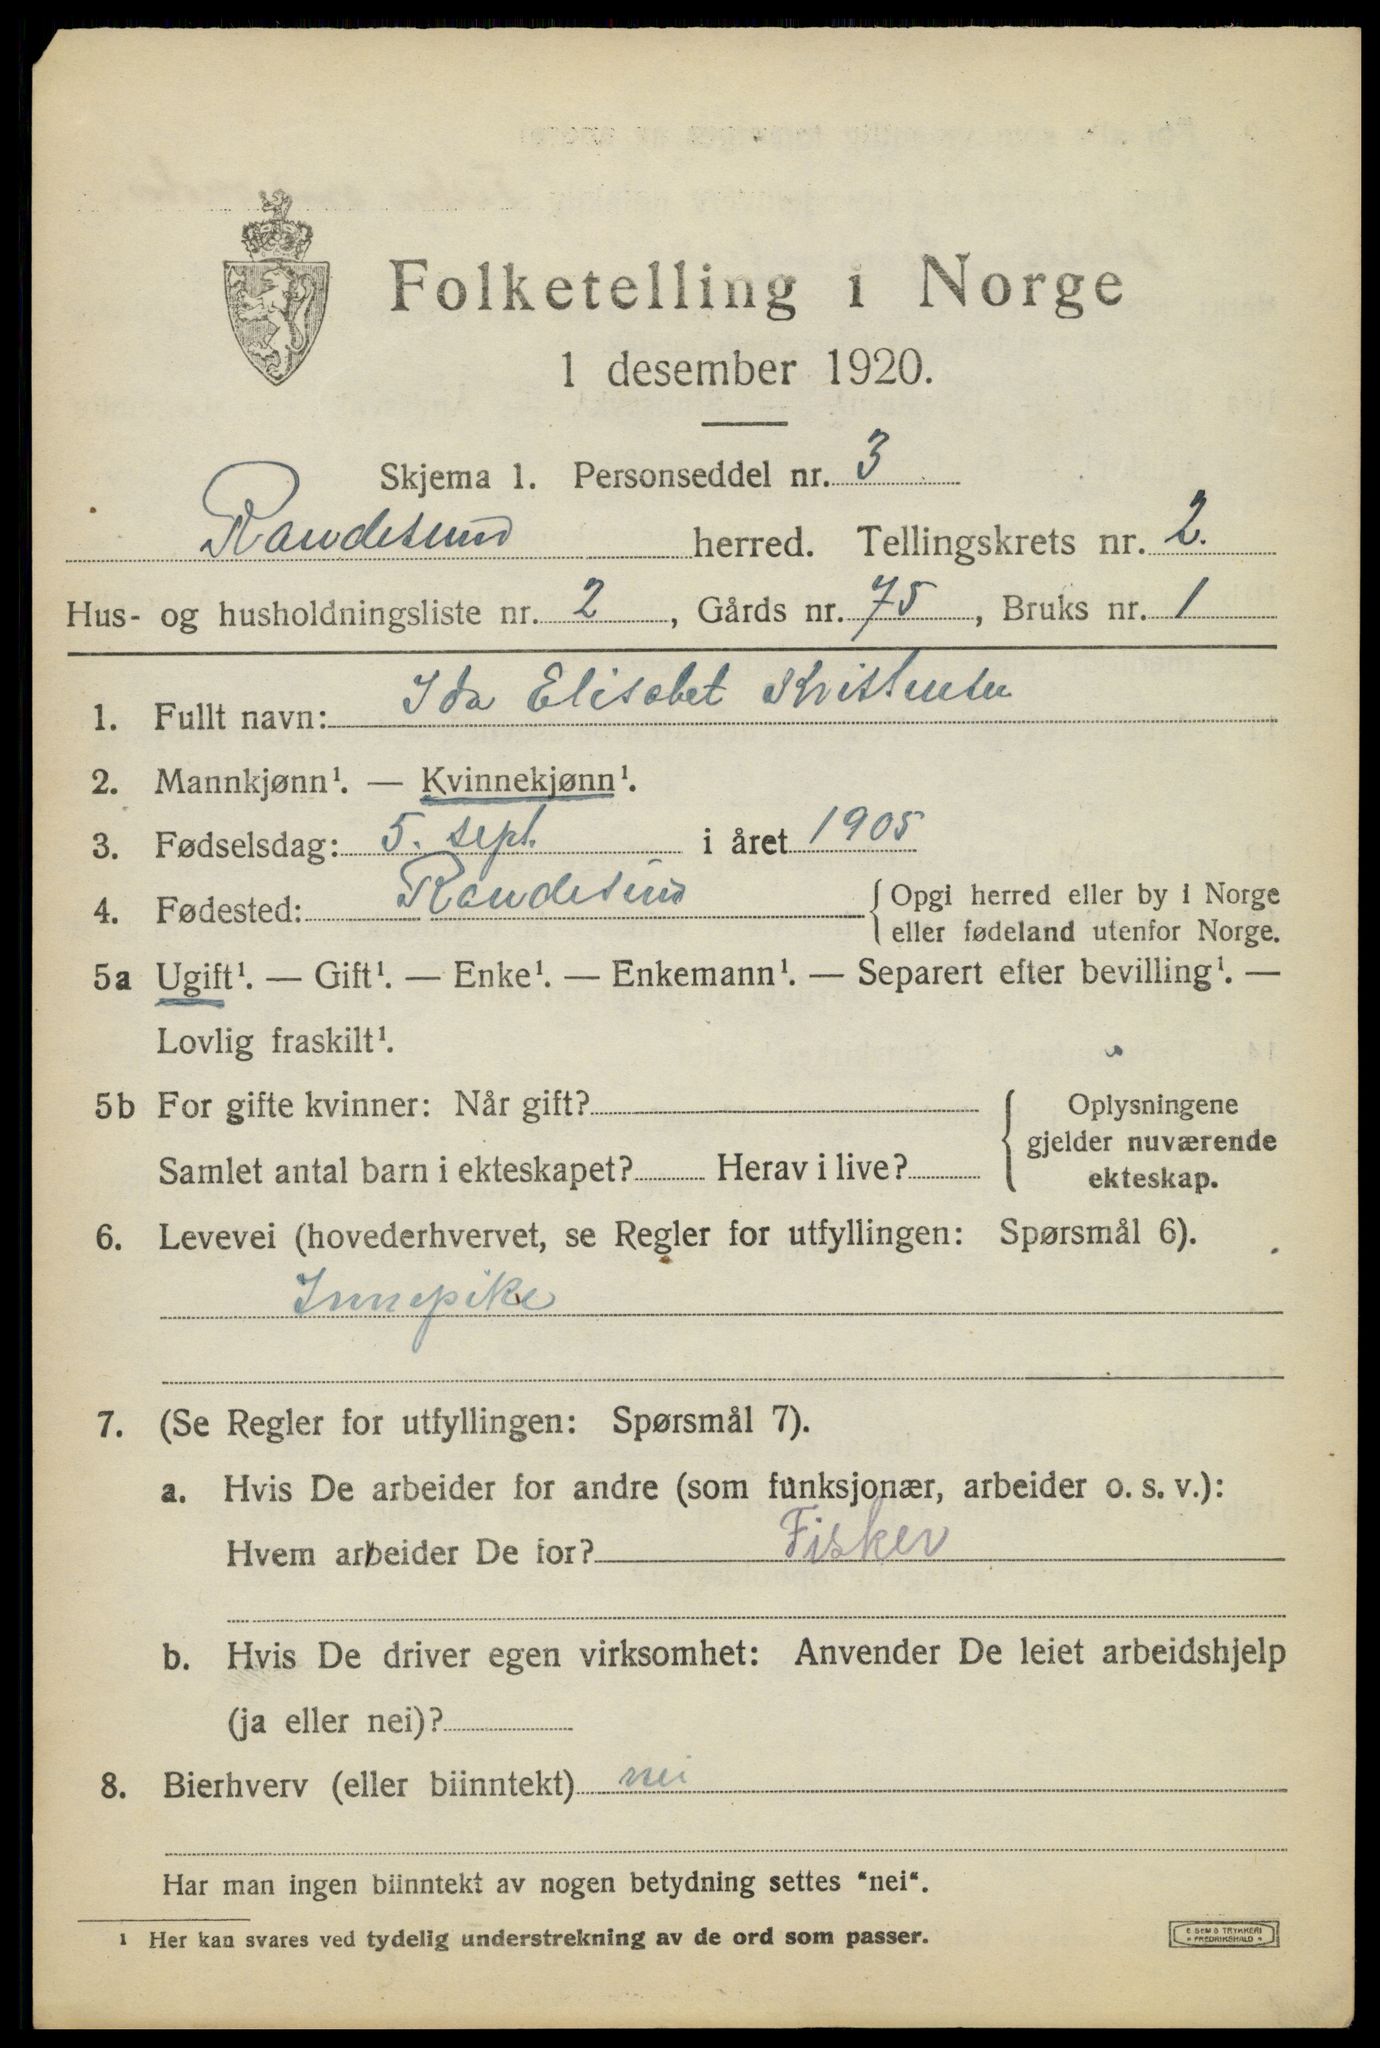 Folketelling i Norge
1 desember 1920.
Skjema 1. Personseddel nr. 3
Randesund herred. Tellingskrets nr. 2.
Hus- og husholdningsliste nr. 2, Gårds nr. 75, Bruks nr. 1
1. Fullt navn: Ida Elisabet Kristensen
2. Mannkjønn¹. — Kvinnekjønn¹.
3. Fødselsdag: 5. sept. i året 1905
4. Fødested: Randesund { Opgi herred eller by i Norge
eller fødeland utenfor Norge.
5a Ugift¹. — Gift¹. — Enke¹. — Enkemann¹. — Separert efter bevilling¹. —
Lovlig fraskilt¹.
5b For gifte kvinner: Når gift? { Oplysningene
gjelder nuværende
Samlet antal barn i ekteskapet? Herav i live? ekteskap.
6. Levevei (hovederhvervet, se Regler for utfyllingen: Spørsmål 6).
Innepike
7. (Se Regler for utfyllingen: Spørsmål 7).
a. Hvis De arbeider for andre (som funksjonær, arbeider o. s. v.):
Hvem arbeider De for? Fisker
b. Hvis De driver egen virksomhet: Anvender De leiet arbeidshjelp
(ja eller nei)?
8. Bierhverv (eller biinntekt) nei
Har man ingen biinntekt av nogen betydning settes "nei".
1 Her kan svares ved tydelig understrekning av de ord som passer.
E SEM S TRYKKERI
FREDRIKSHALD